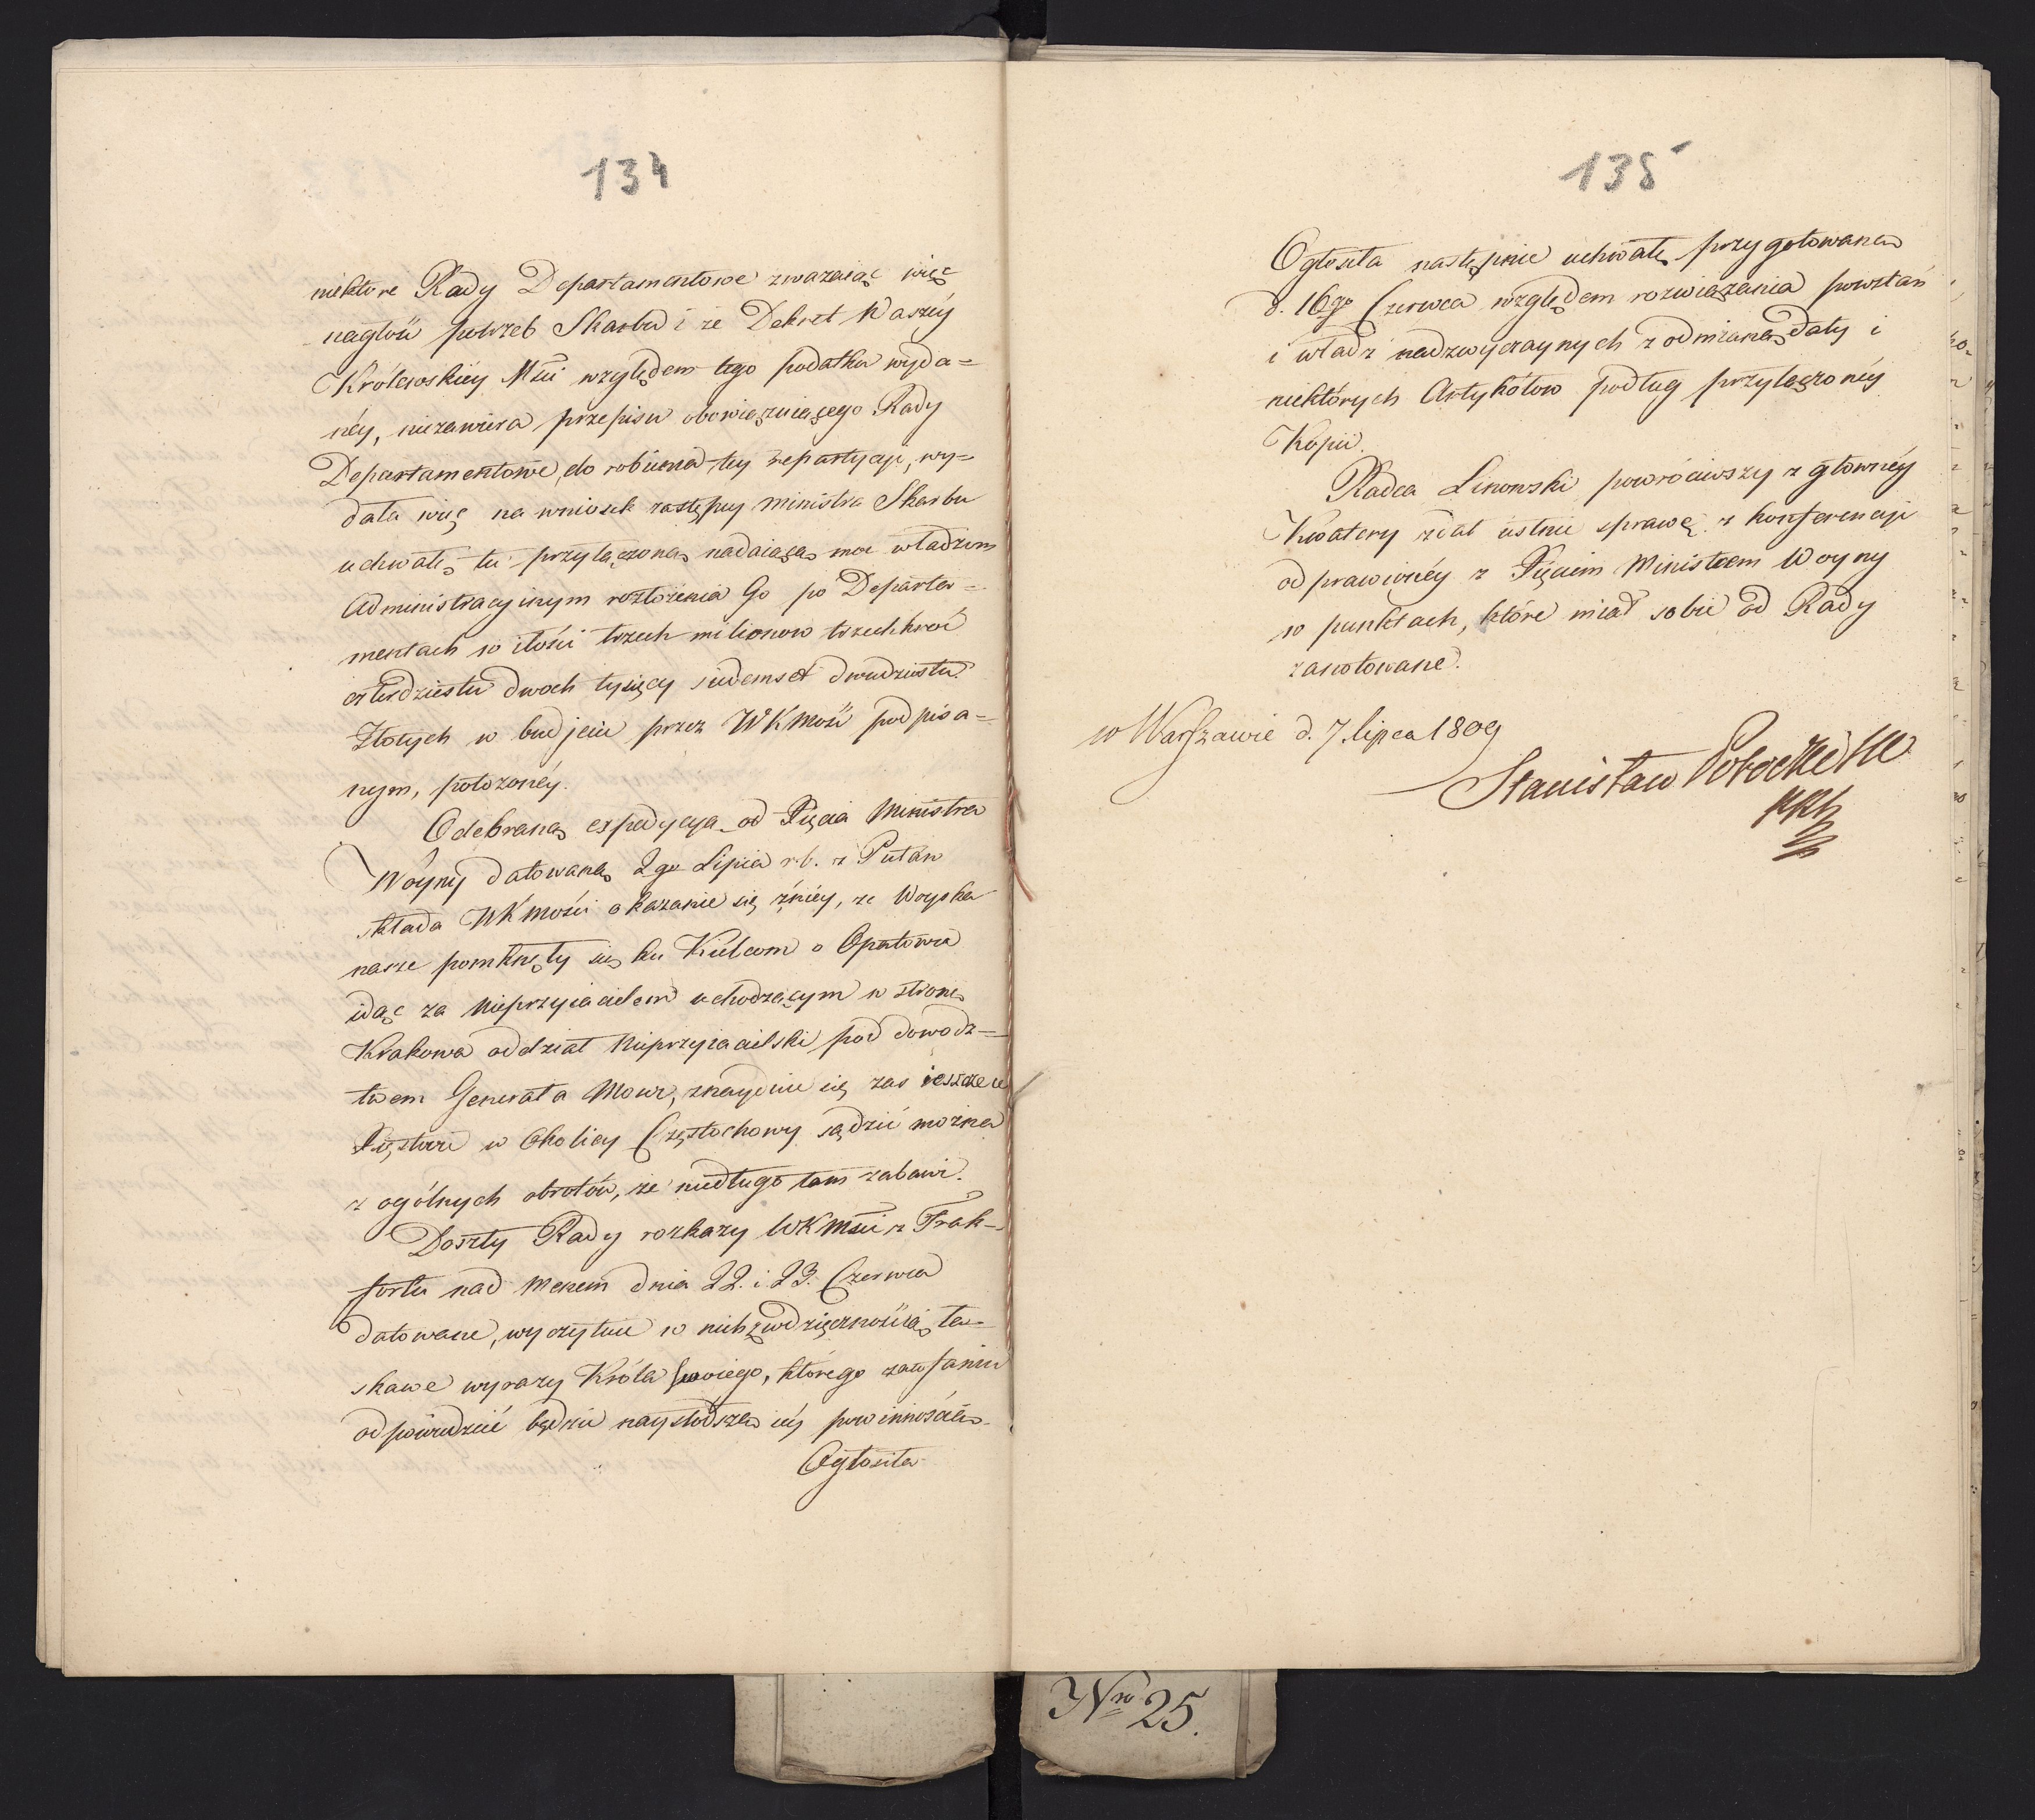 134
niektore Rady Departamentowe zwazaiąc więc
nagłość potrzeb Skarbu i ze Dekret Waszéy
Królewskiéy Mści względem tego podatku wyda=
néy, niezawiera przepisu obowięzuiącego Rady
Departamentowe do robienia téy repartycyi, wy=
dała więc na wniosek zastępcy Ministra Skarbu
uchwałę tu przyłączoną nadaiącą moc władzom
Administracyinym rozłożenia Go po Departa=
mentach w ilości trzech milionow trzechkroć
czterdziestu dwoch tysięcy siedemset dwudziestu
Złotych w budjecie przez WKMość podpisa=
nym, położonéy.
Odebraną expedycyą od Xięcia Ministra
Woyny datowaną 2go Lipca r.b. z Puław
składa WKMości okazanie się zniéy, ze Woyska
nasze pomknęły się ku Kielcom o Opatowa
idąc za Nieprzyiacielem uchodzącym w stronę
Krakowa oddział Nieprzyiacielski pod dowodz=
twem Generała Mour, znayduie się zas ieszcze
w Okolicy Częstochowy sądzić można
z ogólnych obrotów, że niedługo tam zabawi.
Doszły Rady rozkazy WKMści z Frak=
fortu nad Menem dnia 22. i 23. Czerwca
datowane, wyczytuie w nich z wdzięcznością ła=
skawe wyrazy Króla swoiego, którego zaufaniu
odpowiedzieć będzie naysłodszą iéy powinnością.
Ogłosiła
135
Ogłosiła następnie uchwałę przygotowaną
d. 16go Czerwca względem rozwiązania powstań
i władz nadzwyczaynych z odmianą daty i
niektórych Artykółow podług przyłączonéy
Kopii.
Radca Linowski powróciwszy z głownéy
Kwatery zdał ustnie sprawę z konferencyi
odprawionéy z Xięciem Ministrem Woyny
w punktach, które miał sobie od Rady
zanotowane.
w Warszawie d. 7. lipca 1809
Stanisław Potocki
Nro 25.